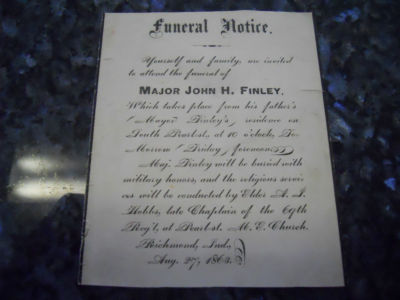 Funeral Notice.
Yourself and family, are invited
to attend the funeral of
MAJOR JOHN H. FINLEY,
Which takes place from his father's
(Mayor Finley's) residence on
South Pearl st., at 10 o'clock, To-
Morrow (Friday) forenoon.
Maj. Finley will be buried with
military honors, and the religious servi-
ces will be conducted by Elder A. I.
Hobbs, late Chaplain of the 69th
Reg't, at Pearl st. M. E. Church.
Richmond, Ind.,
Aug. 27, 1863.